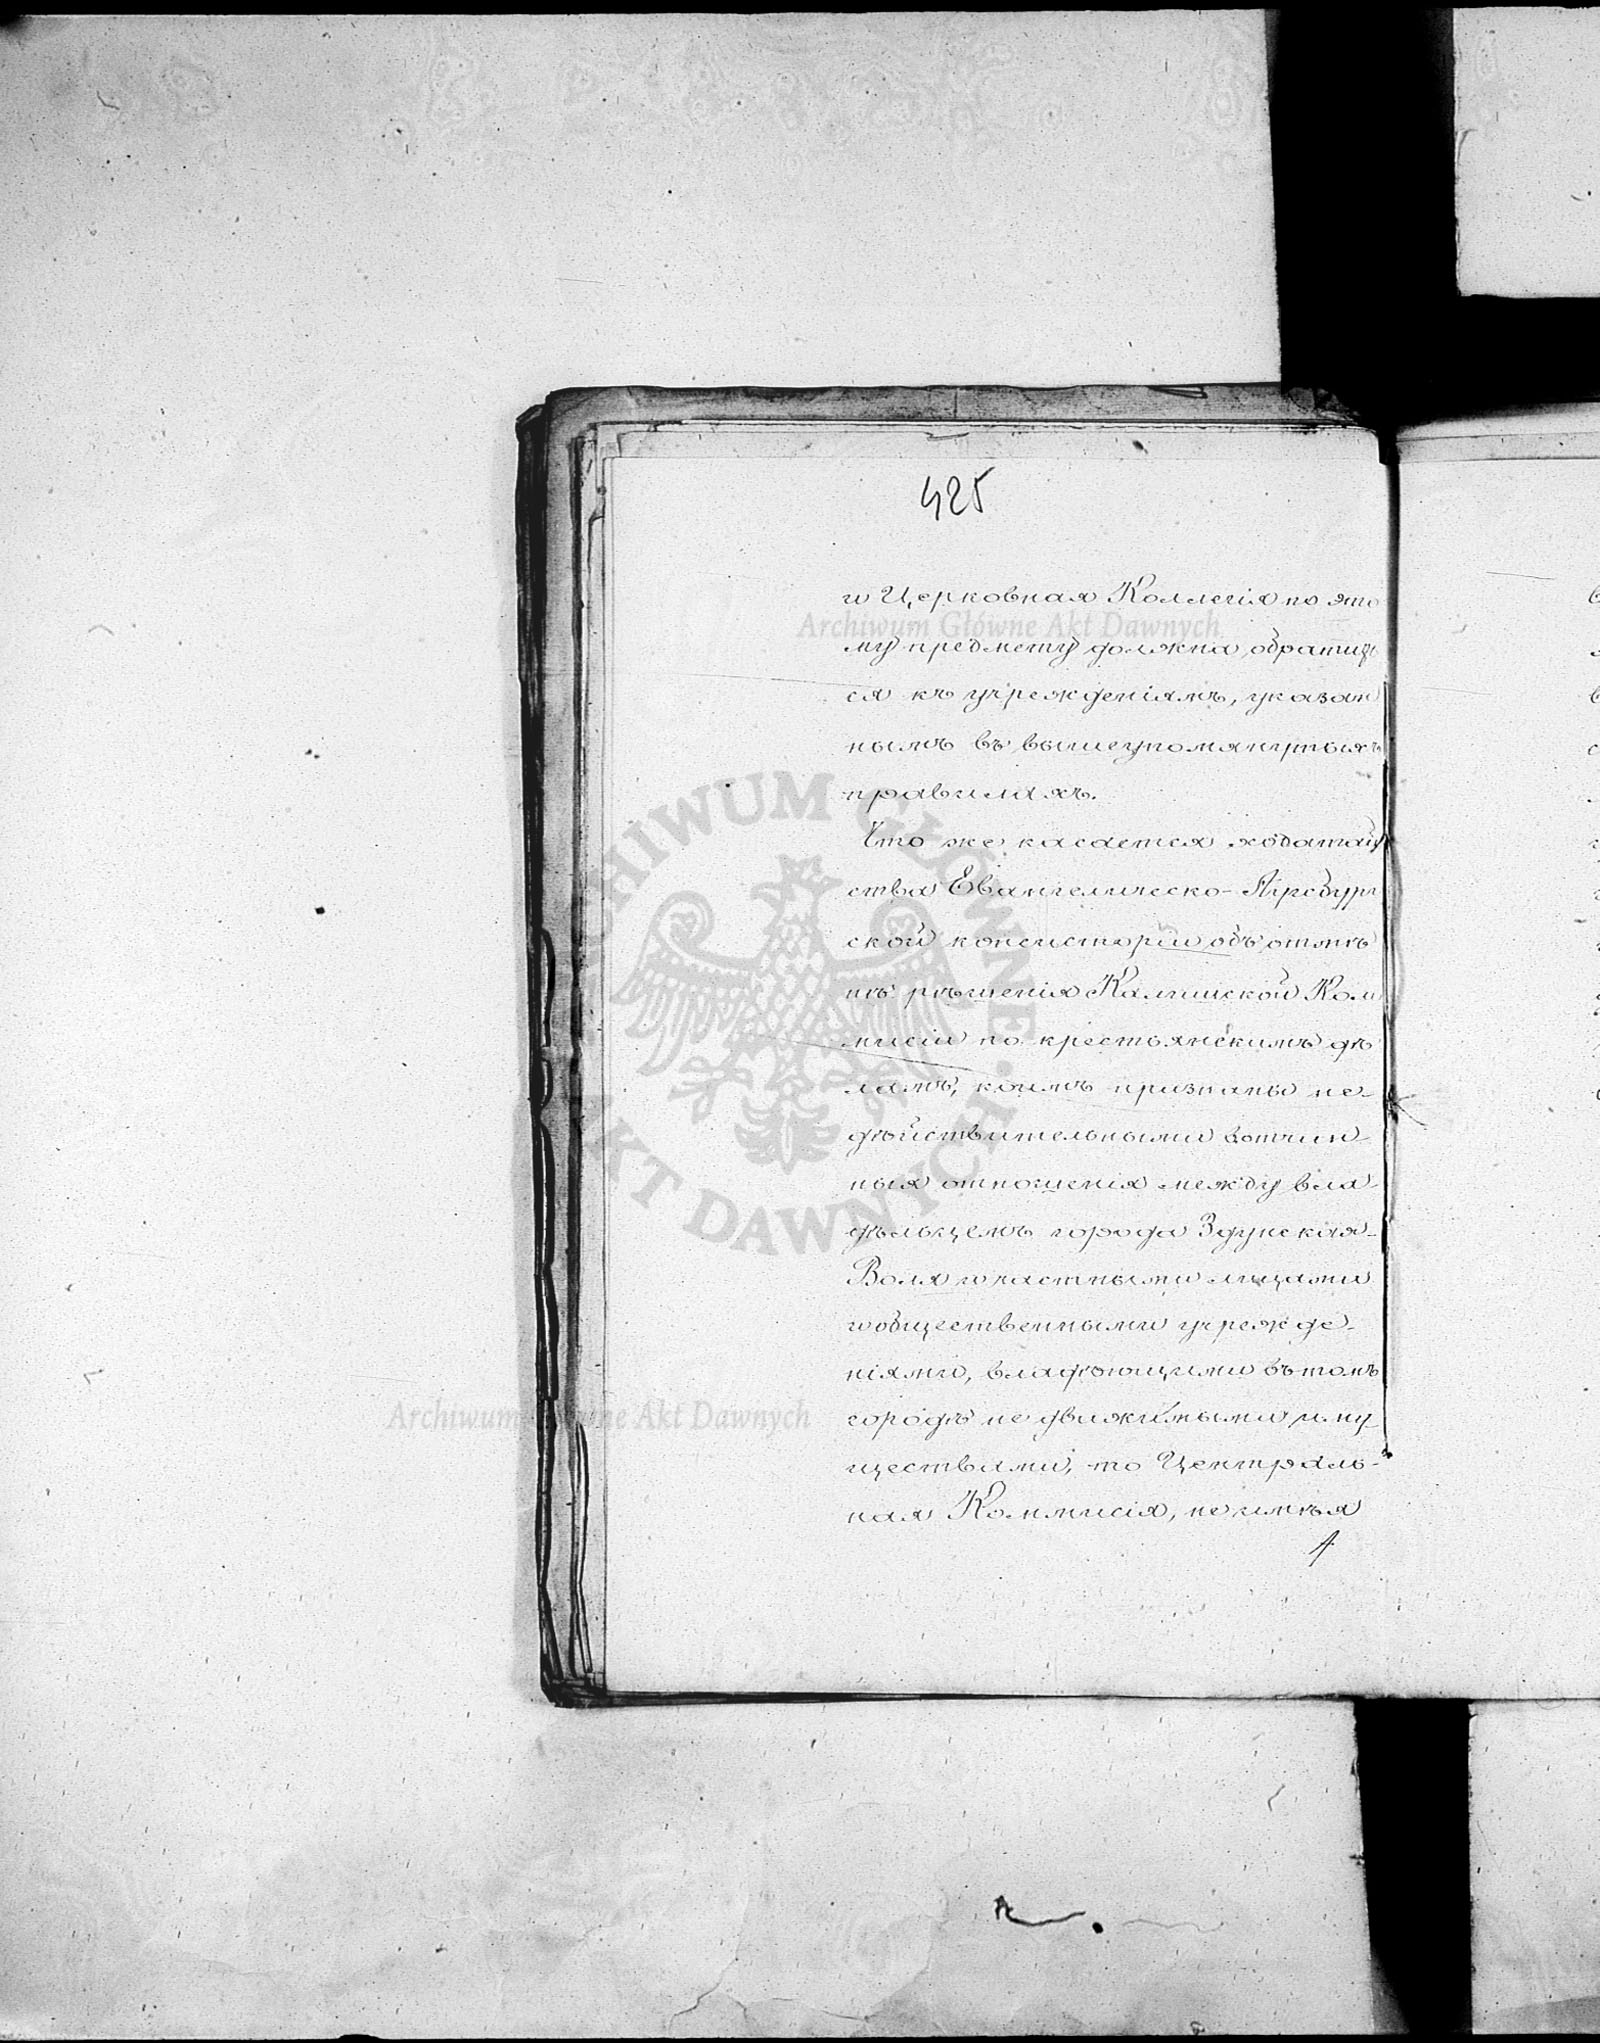 425
и Церковная Коллегія по это
му предмету должна обратить
ся къ учрежденіямъ, указан
нымъ въ вышеупомянутыхъ
правилахъ.
Что же касается ходатай
ства Евангелическо-Аугсбург
ской консисторіи объ отмѣ
нѣ рѣшенія Калишской Ком
мисіи по крестьянскимъ дѣ
ламъ, коимъ признаны не-
дѣйствительными вотчин-
ныя отношенія между вла-
дѣльцемъ города Здунская-
Воля и частными лицами
и общественными учрежде-
ніями, владѣющими въ томъ
городѣ недвижимыми иму-
ществами, то Централь-
ная Коммисія, не имѣя
Archiwum Główne Akt Dawnych
ARCHIWUM GŁÓWNE AKT DAWNYCH
Archiwum Główne Akt Dawnych